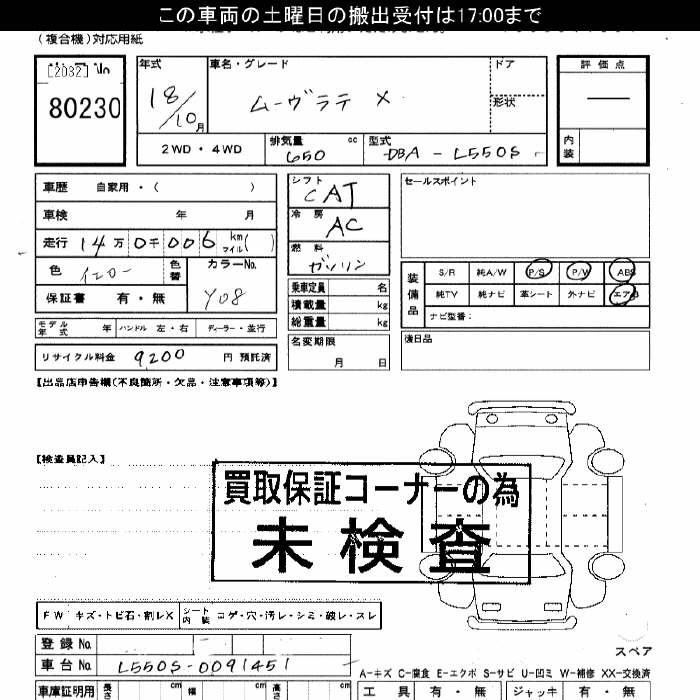 この車両の土曜日の搬出受付は17:00まで
(複合機)対応用紙
[2032] No
80230
年式
18/10月
車名・グレード
ムーヴラテ X
ドア
形状
評価点
内装
2WD・4WD
排気量
650 cc
型式
DBA-L550S
車歴 自家用・( )
車検 年 月
走行 14万 0千 006 km マイル( )
色 イエロー
色替
カラーNo.
Y08
保証書 有・無
モデル年式 年
ハンドル 左・右
ディーラー・並行
リサイクル料金 9200 円 預託済
シフト
CAT
冷房
AC
燃料
ガソリン
乗車定員 名
積載量 kg
総重量 kg
名変期限
月 日
セールスポイント
装備品
S/R 純A/W P/S P/W ABS
純TV 純ナビ 革シート 外ナビ エアB
ナビ型番:
後日品
【出品店申告欄(不良箇所・欠品・注意事項等)】
【検査員記入】
買取保証コーナーの為
未検査
FW キズ・トビ石・割レX
シート内装 コゲ・穴・汚レ・シミ・破レ・スレ
登録No.
車台No. L550S-0091451
スペア
A-キズ C-腐食 E-エクボ S-サビ U-凹ミ W-補修 XX-交換済
車庫証明用 長さ cm 幅 cm 高さ cm
工具 有・無 ジャッキ 有・無